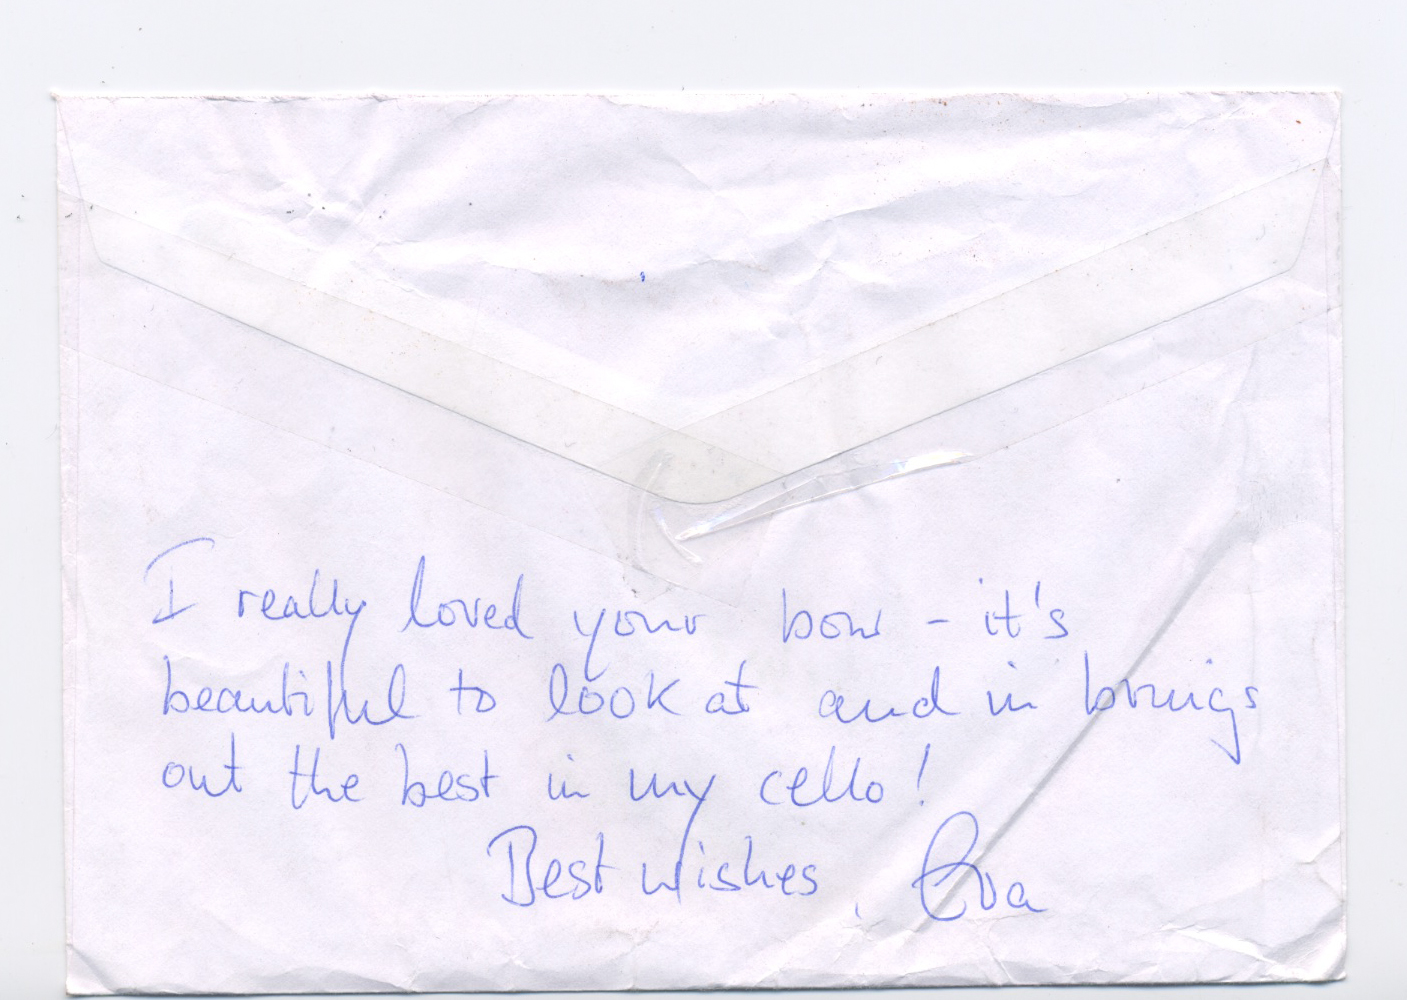 I really loved your bow - it's
beautiful to look at and in brings
out the best in my cello!
Best wishes, Eva